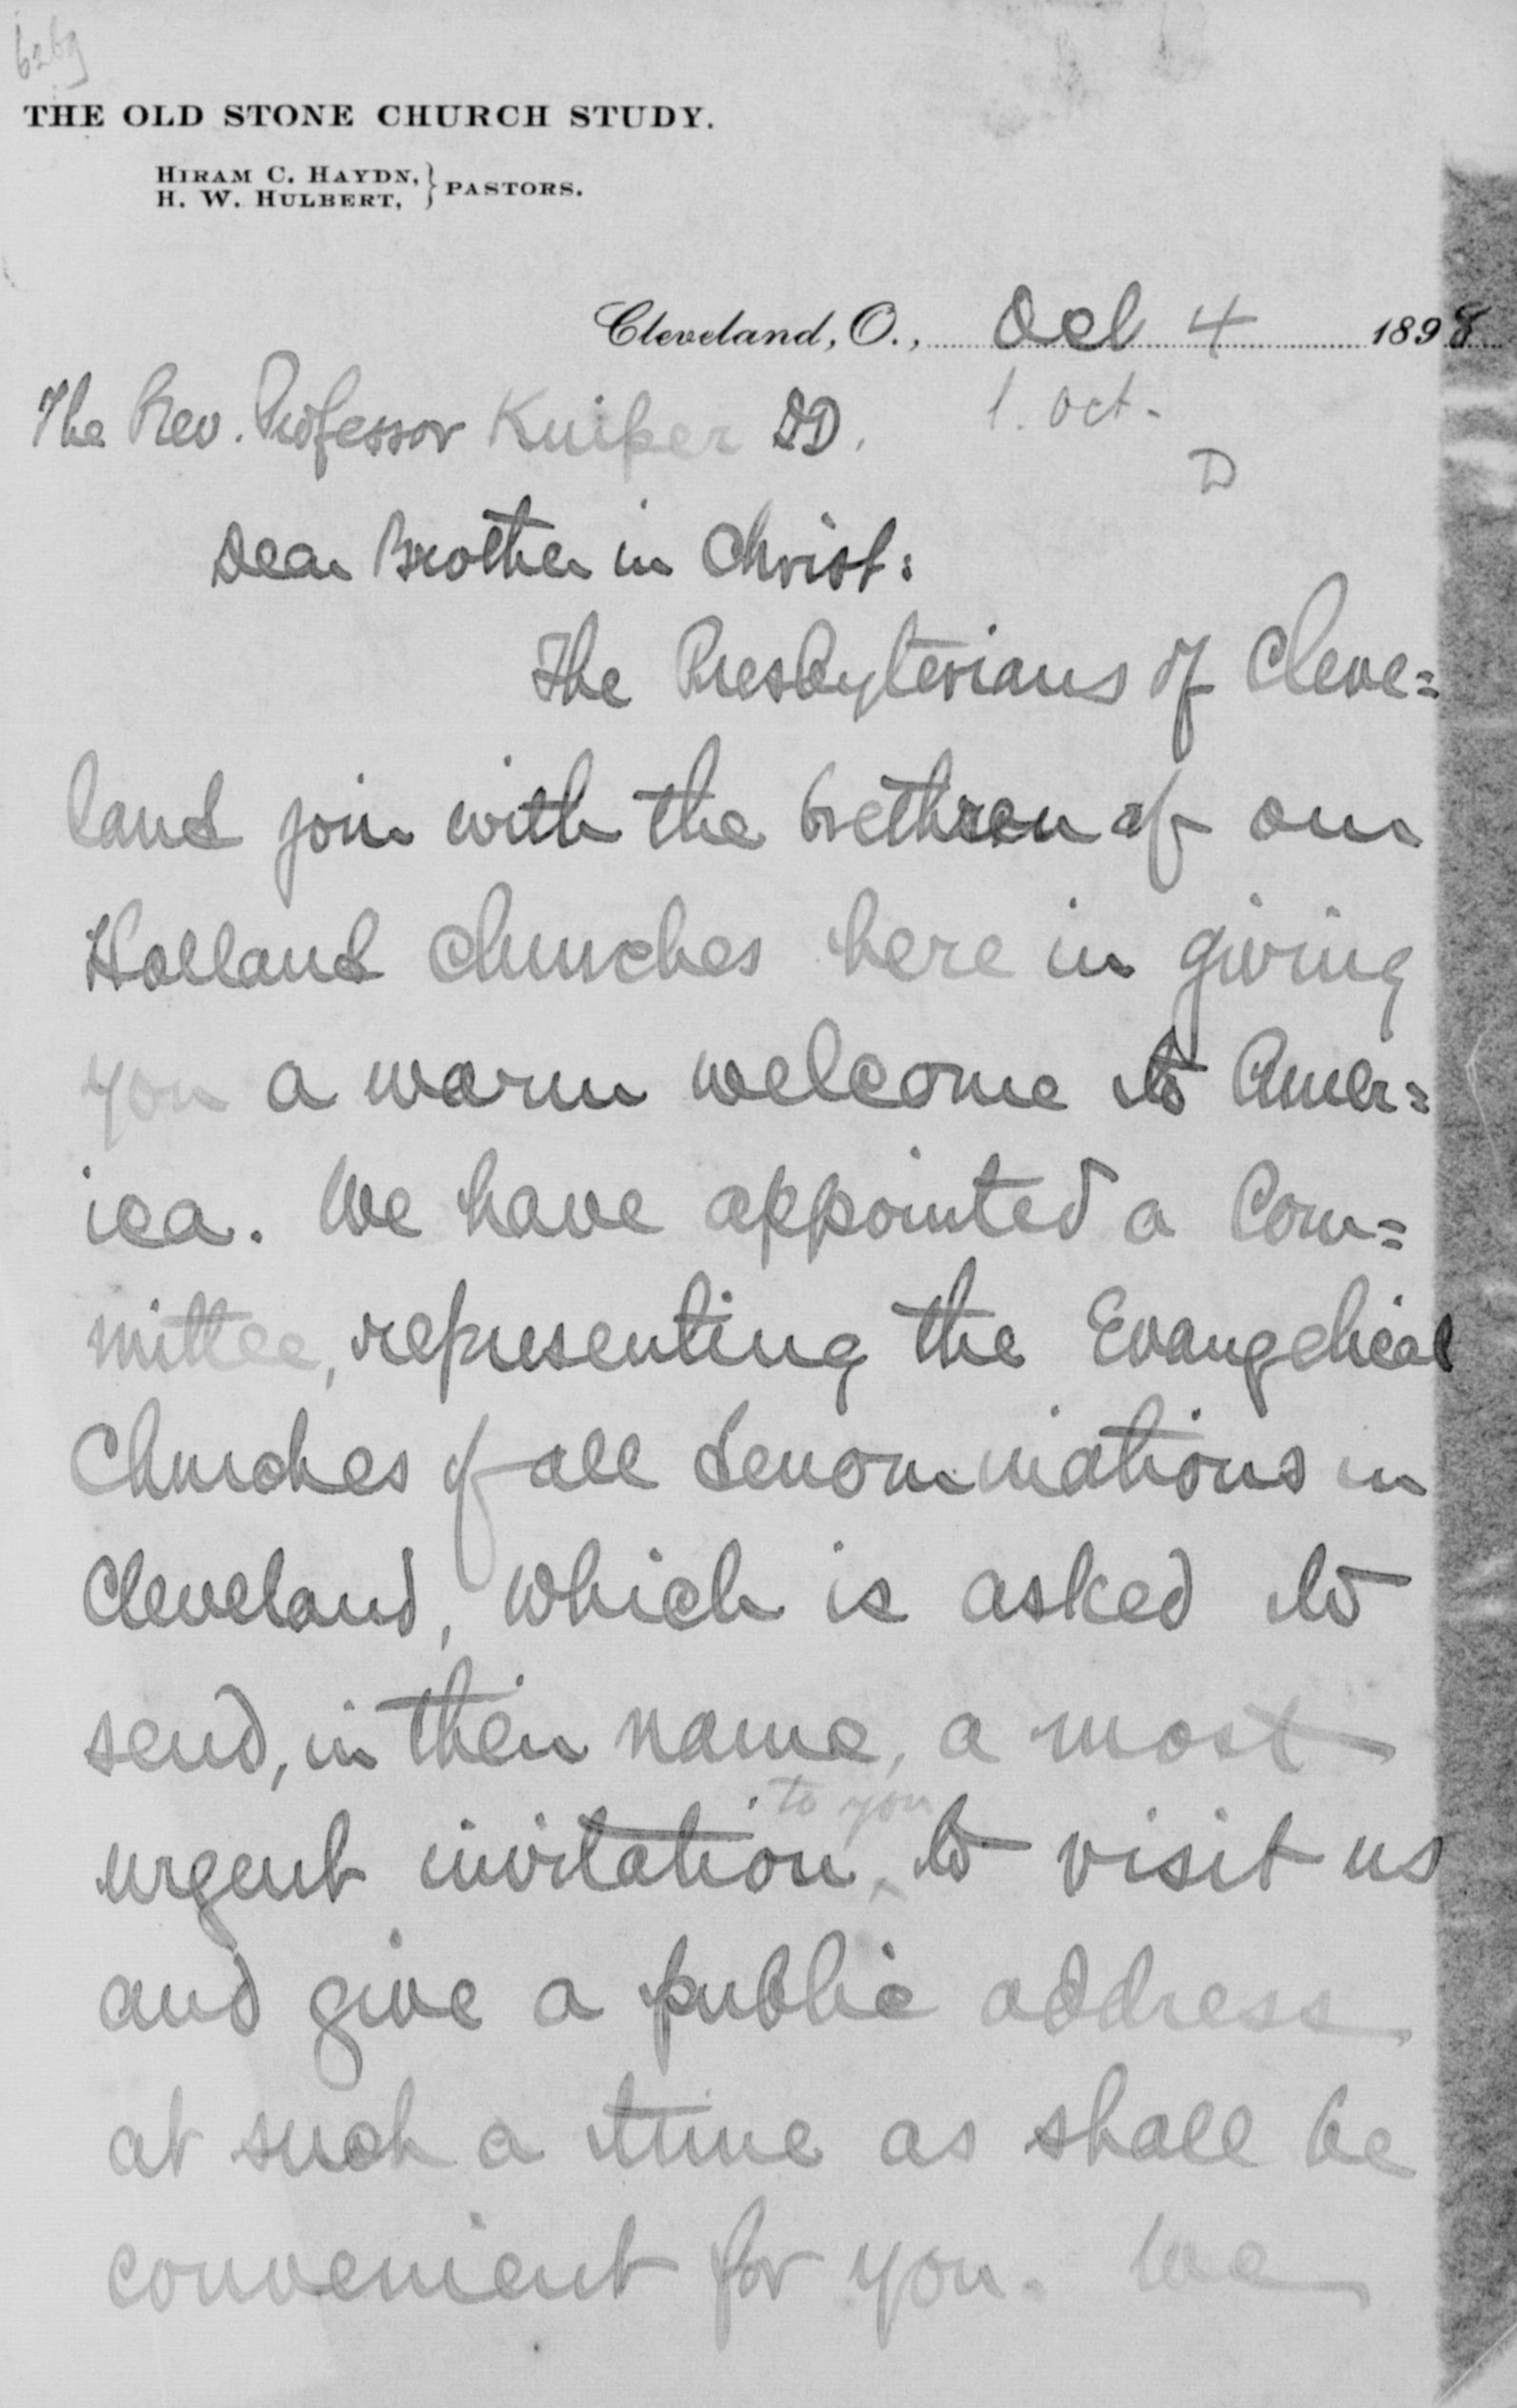 6269
THE OLD STONE CHURCH STUDY.
HIRAM C. HAYDN, } PASTORS.
H. W. HULBERT,
Cleveland, O., Oct 4 1898
1. Oct.
The Rev. Professor Kuiper DD.
D
Dear Brother in Christ:
The Presbyterians of Cleve=
land join with the brethren of our
Holland churches here in giving
you a warm welcome to Amer=
ica. We have appointed a Com=
mittee, representing the Evangelical
Churches of all denominations in
Cleveland, which is asked to
send, in their name, a most
to you
urgent invitation ^ to visit us
and give a public address
at such a time as shall be
convenient for you. We